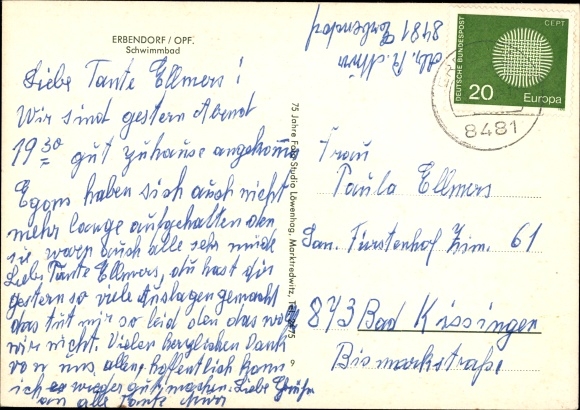 ERBENDORF / OPF.
Schwimmbad
Liebe Tante Ellmers!
Wir sind gestern Abend
19 30 gut zuhause angekomm
Egons haben sich auch nicht
mehr lange aufgehalten den
sie warn auch alle sehr müde
Liebe Tante Ellmers, du hast für
gestern so viele Auslagen gemacht
das tut mir so leid den das wolt
wir nicht. Vielen herzlichen Dank
von uns allen, hoffentlich kann
ich es wieder gutmachen. Liebe Grüße
an alle Tante
75 Jahre Foto Studio Löwenhag, Marktredwitz, Tel. 2275
Abs. R.
8481 Erbendorf
DEUTSCHE BUNDESPOST
CEPT
20 Europa
8481
Frau
Paula Ellmers
San. Fürstenhof Zim. 61
873 Bad Kissingen
Bismarkstraße